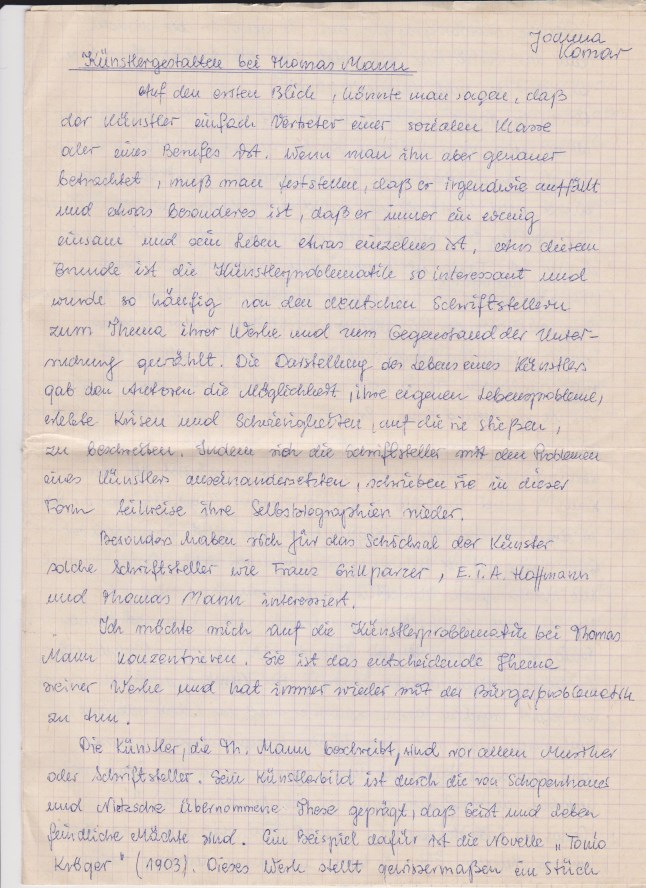 Joanna
Komar
Künstlergestalten bei Thomas Mann
Auf den ersten Blick, könnte man sagen, daß
der Künstler einfach Vertreter einer sozialen Klasse
oder eines Berufes ist. Wenn man ihn aber genauer
betrachtet, muß man feststellen, daß er irgendwie auffällt
und etwas Besonderes ist, daß er immer ein wenig
einsam und sein Leben etwas einzelnes ist. Aus diesem
Grunde ist die Künstlerproblematik so interessant und
wurde so häufig von den deutschen Schriftstellern
zum Thema ihrer Werke und zum Gegenstand der Unter-
suchung gewählt. Die Darstellung des Lebens eines Künstlers
gab den Autoren die Möglichkeit, ihre eigenen Lebensprobleme,
erlebte Krisen und Schwierigkeiten, auf die sie stießen,
zu beschreiben. Indem sich die Schriftsteller mit den Problemen
eines Künstlers auseinandersetzten, schrieben sie in dieser
Form teilweise ihre Selbstbiographien nieder.
Besonders haben sich für das Schicksal der Künster
solche Schriftsteller wie Franz Grillparzer, E.T.A. Hoffmann
und Thomas Mann interessiert.
Ich möchte mich auf die Künstlerproblematik bei Thomas
Mann konzentrieren. Sie ist das entscheidende Thema
seiner Werke und hat immer wieder mit der Bürgerproblematik
zu tun.
Die Künstler, die Th. Mann beschreibt, sind vor allem Musiker
oder Schriftsteller. Sein Künstlerbild ist durch die von Schopenhauer
und Nietzsche übernommene These geprägt, daß Geist und Leben
feindliche Mächte sind. Ein Beispiel dafür ist die Novelle „Tonio
Kröger" (1903). Dieses Werk stellt gewissermaßen ein Stück